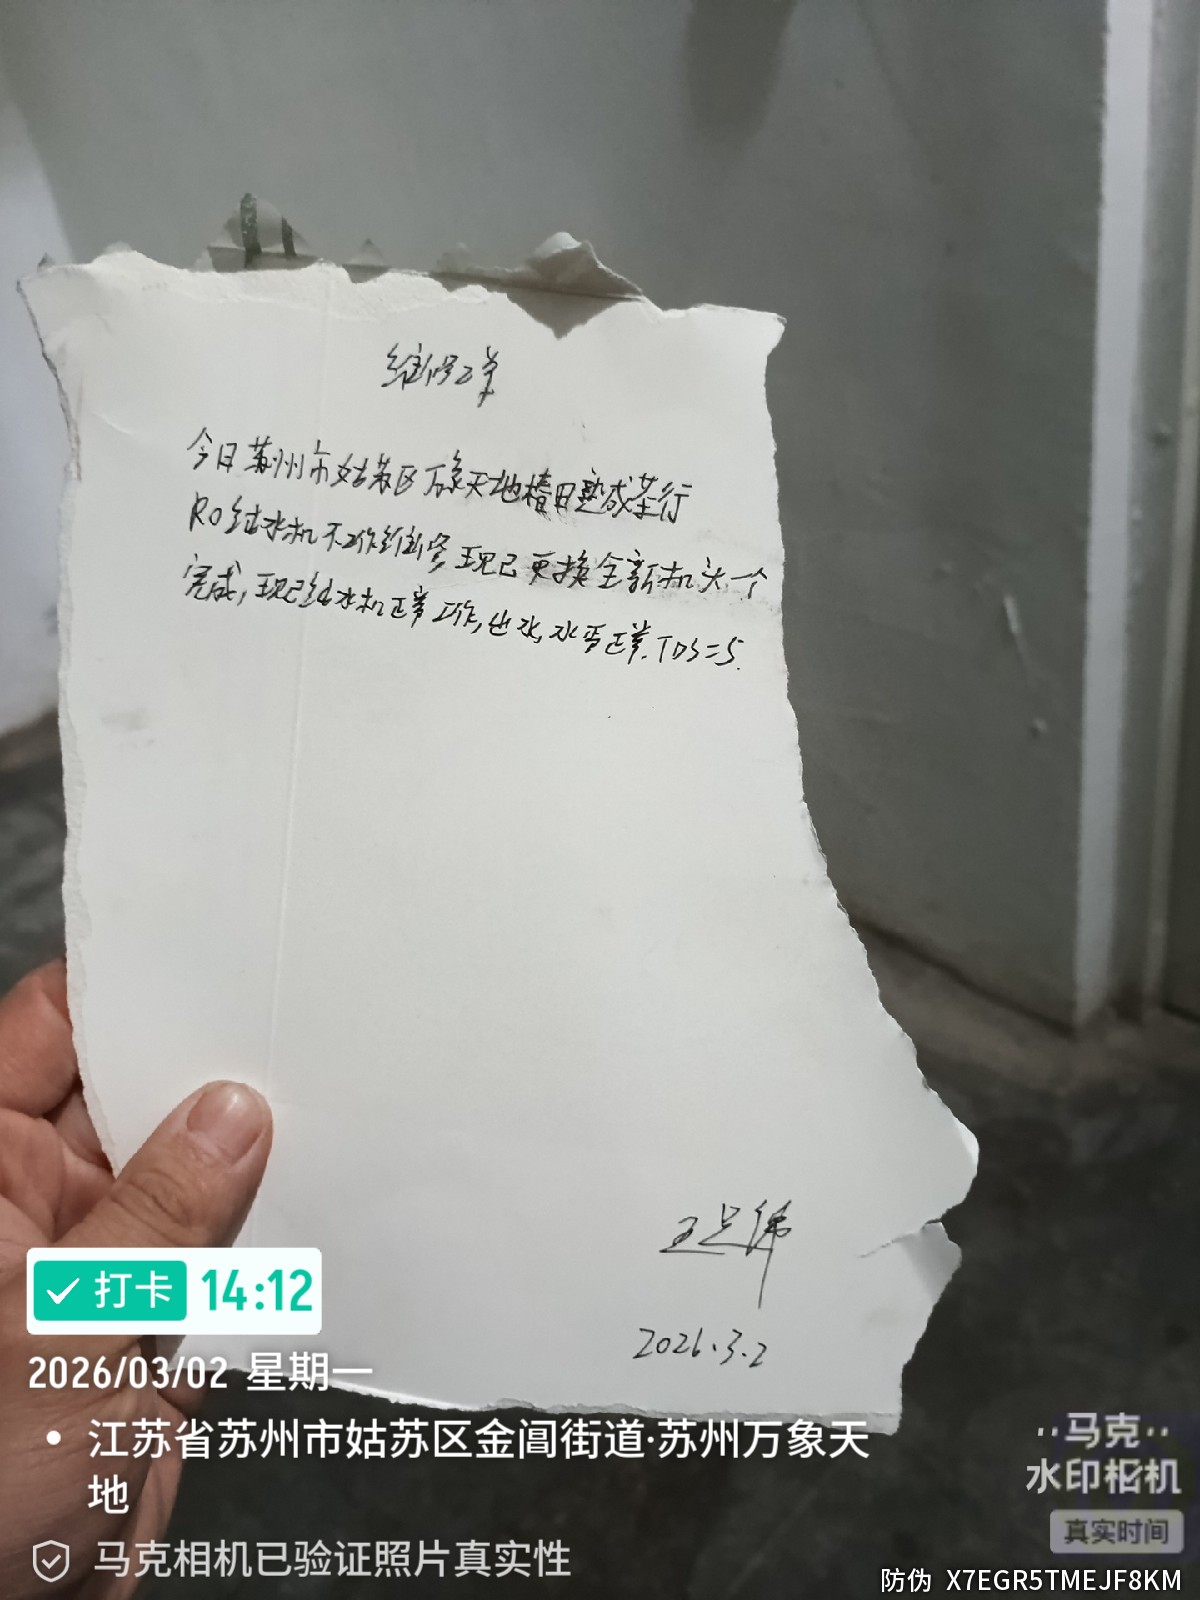 维修工单
今日苏州市姑苏区万象天地椿日熟成茶行
RO纯水机不工作维修,现已更换全新机头一个
完成,现已纯水机正常工作,出水,水质正常.TDS=5.
2026.3.2
打卡 14:12
2026/03/02 星期一
江苏省苏州市姑苏区金阊街道·苏州万象天
地
马克相机已验证照片真实性
马克
水印相机
真实时间
防伪 X7EGR5TMEJF8KM